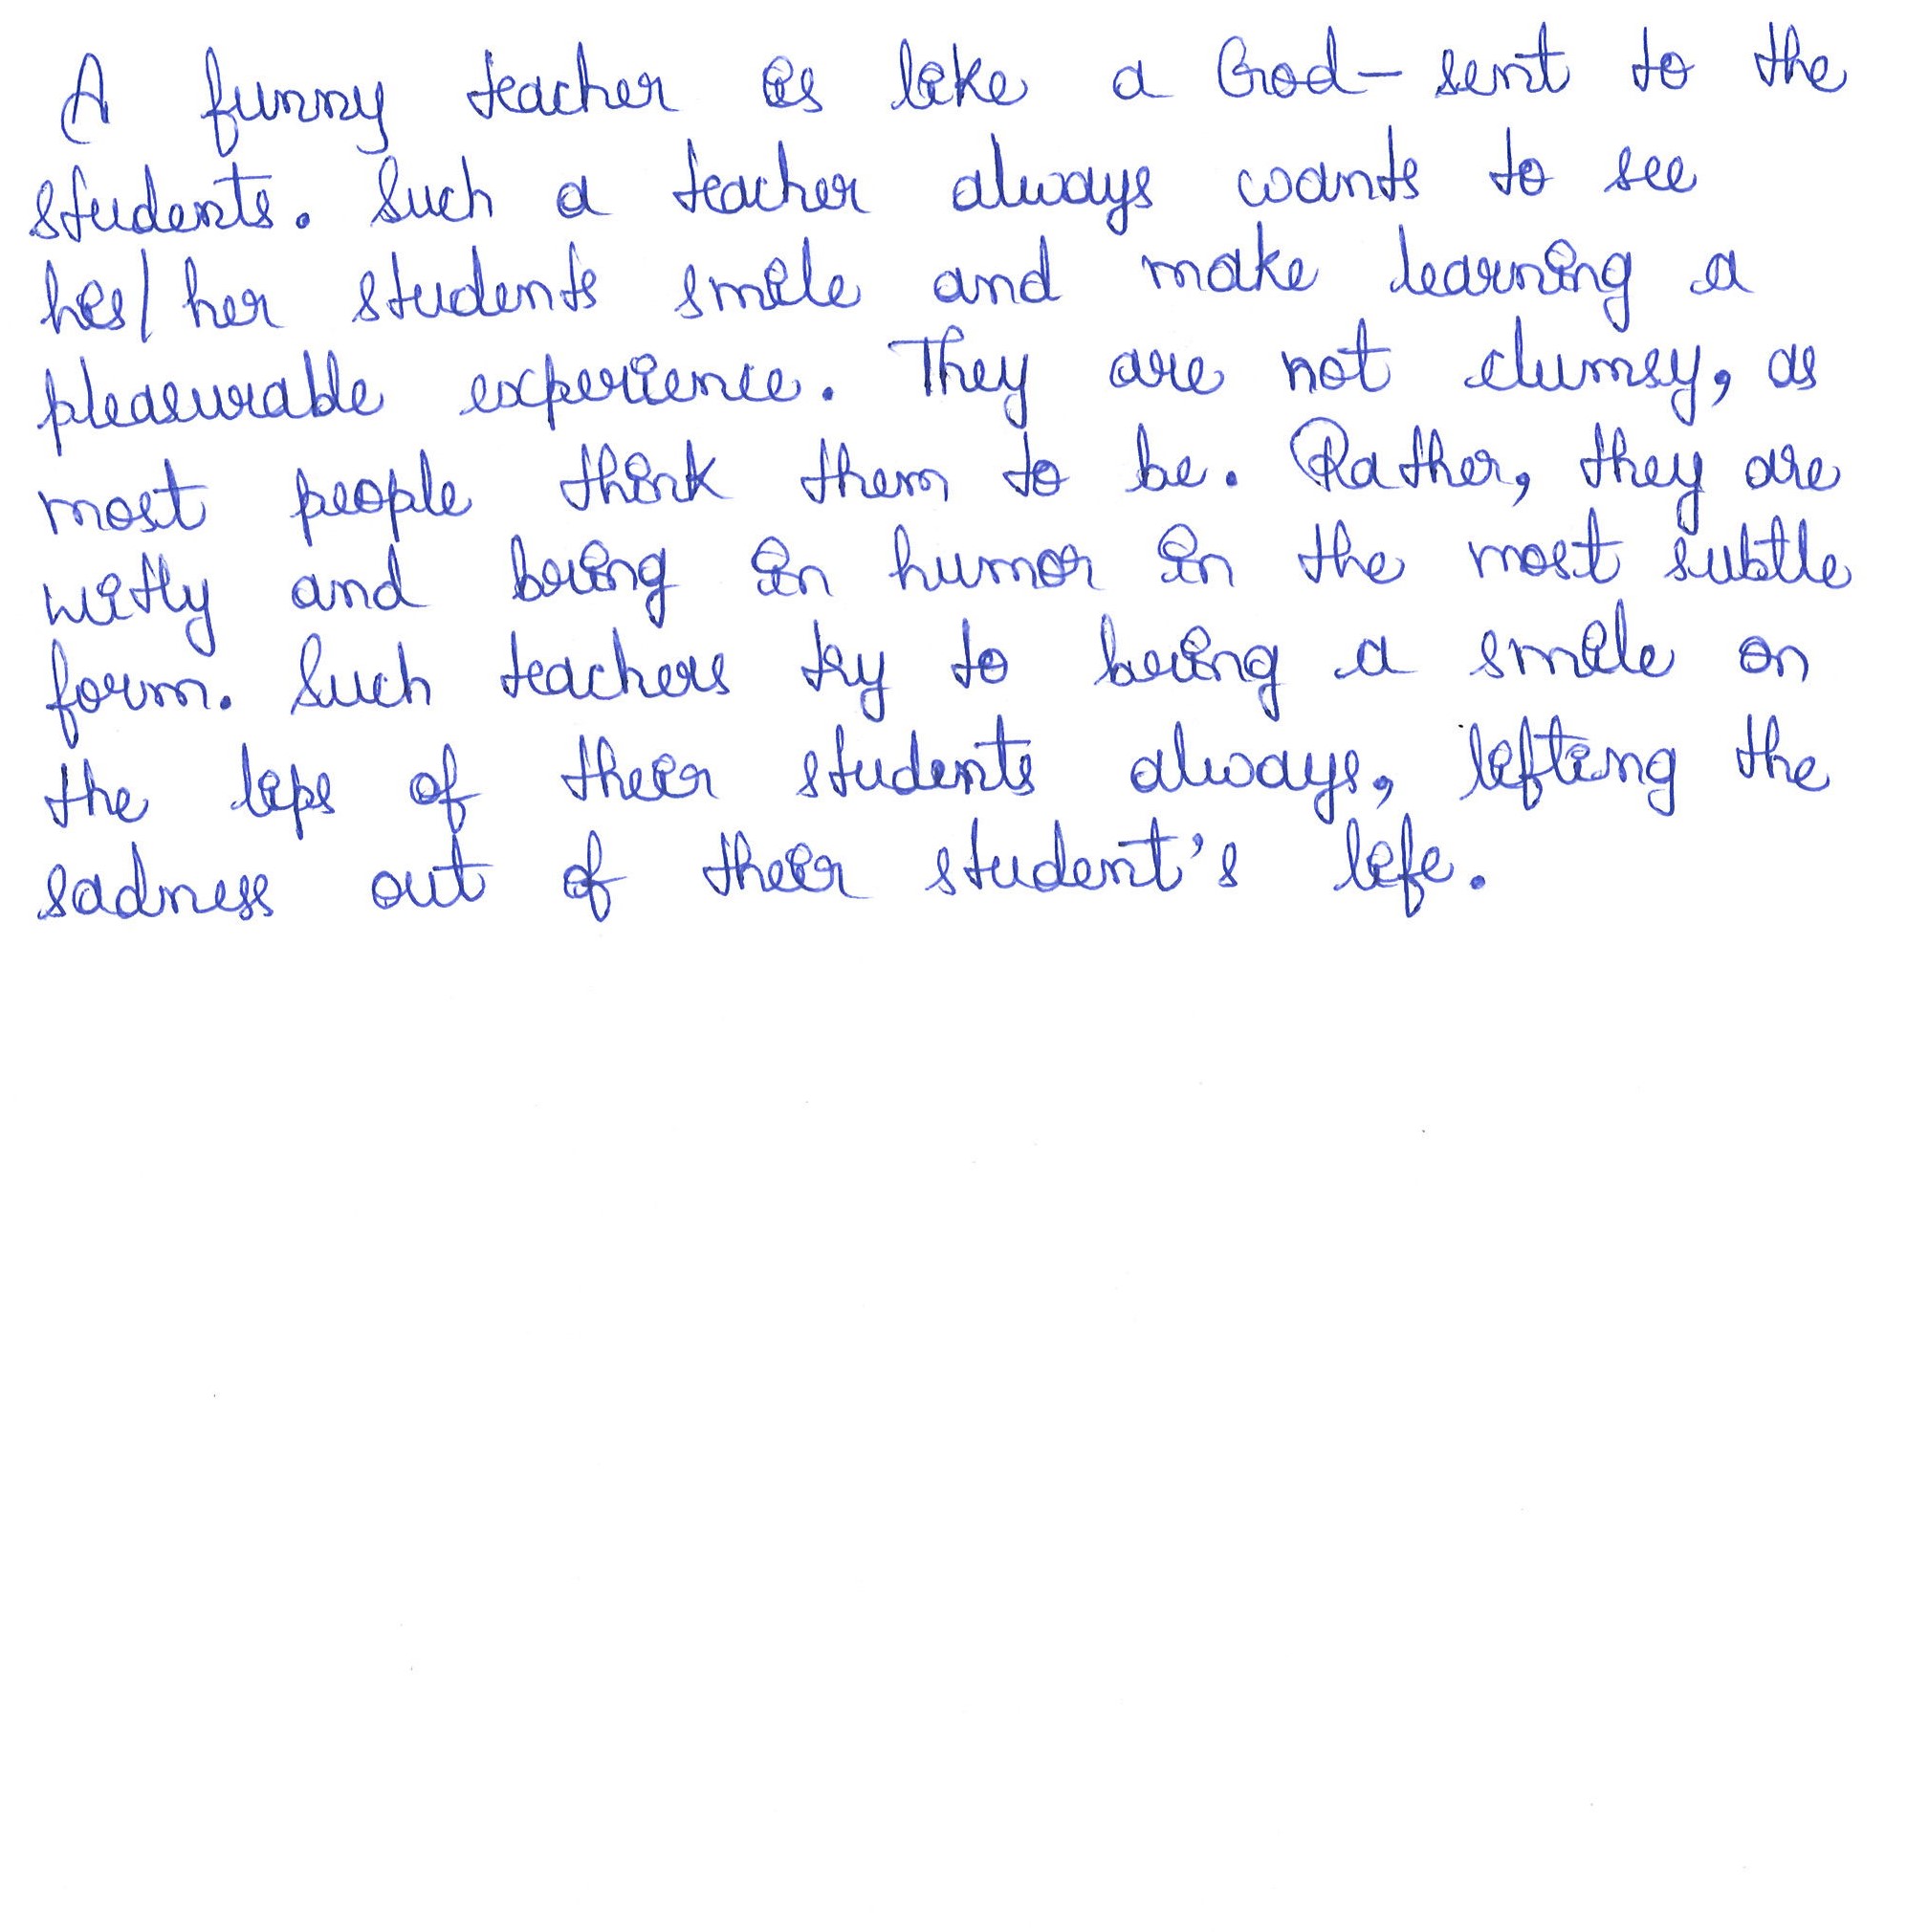 A funny teacher is like a God-sent to the
students. Such a teacher always wants to see
his/her students smile and make learning a
pleasurable experience. They are not clumsy, as
most people think them to be. Rather, they are
witty and bring in humor in the most subtle
form. Such teachers try to bring a smile on
the lips of their students always, lifting the
sadness out of their student's life.